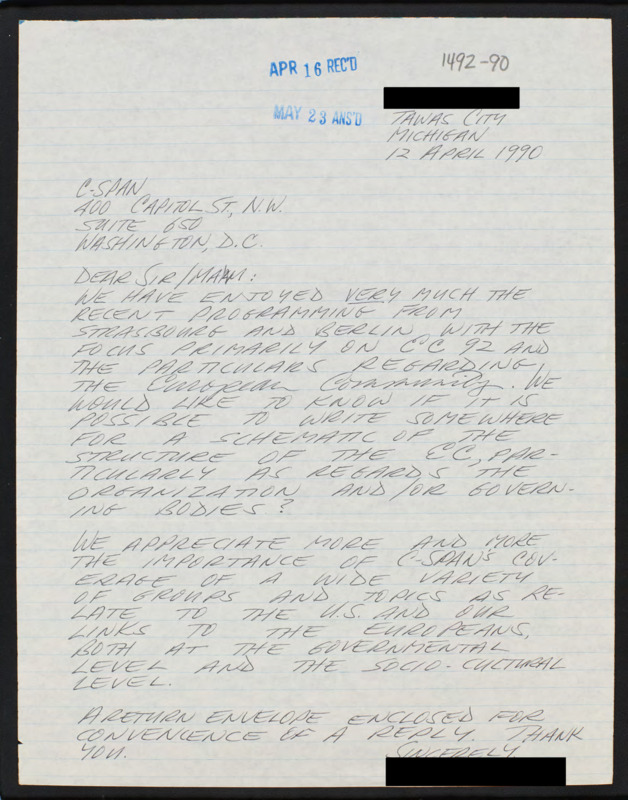 APR 16 REC'D
1492-90
MAY 23 ANS'D
TAWAS CITY
MICHIGAN
12 APRIL 1990
C-SPAN
400 CAPITOL ST., N.W.
SUITE 650
WASHINGTON, D.C.
DEAR SIR/MA'AM:
WE HAVE ENJOYED VERY MUCH THE
RECENT PROGRAMMING FROM
STRASBOURG AND BERLIN WITH THE
FOCUS PRIMARILY ON EC 92 AND
THE PARTICULARS REGARDING
THE European Community. WE
WOULD LIKE TO KNOW IF IT IS
POSSIBLE TO WRITE SOMEWHERE
FOR A SCHEMATIC OF THE
STRUCTURE OF THE EC, PAR-
TICULARLY AS REGARDS THE
ORGANIZATION AND/OR GOVERN-
ING BODIES?
WE APPRECIATE MORE AND MORE
THE IMPORTANCE OF C-SPAN'S COV-
ERAGE OF A WIDE VARIETY
OF GROUPS AND TOPICS AS RE-
LATE TO THE U.S. AND OUR
LINKS TO THE EUROPEANS,
BOTH AT THE GOVERNMENTAL
LEVEL AND THE SOCIO-CULTURAL
LEVEL.
A RETURN ENVELOPE ENCLOSED FOR
CONVENIENCE OF A REPLY. THANK
YOU.
SINCERELY,